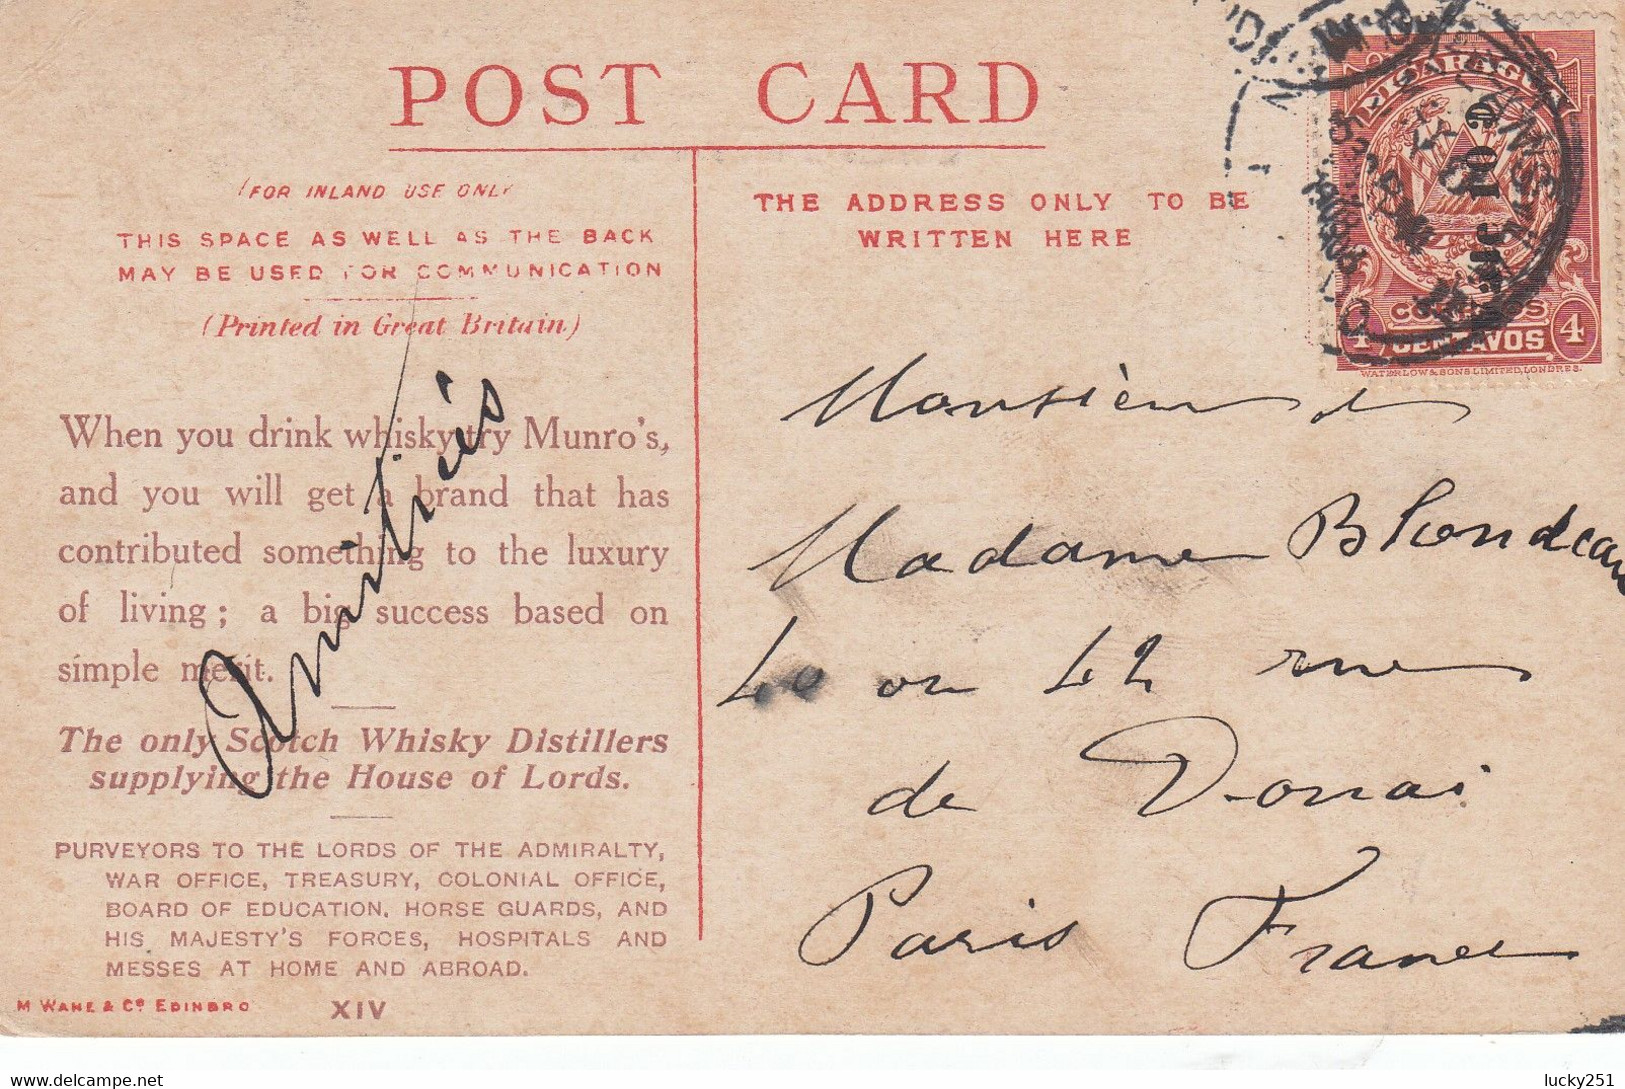 POST CARD
(FOR INLAND USE ONLY
THIS SPACE AS WELL AS THE BACK
MAY BE USED FOR COMMUNICATION
(Printed in Great Britain)
When you drink whisky try Munro's,
and you will get a brand that has
contributed something to the luxury
of living; a big success based on
simple merit.
The only Scotch Whisky Distillers
supplying the House of Lords.
PURVEYORS TO THE LORDS OF THE ADMIRALTY,
WAR OFFICE, TREASURY, COLONIAL OFFICE,
BOARD OF EDUCATION, HORSE GUARDS, AND
HIS MAJESTY'S FORCES, HOSPITALS AND
MESSES AT HOME AND ABROAD.
M WANE & Co EDINBRO
XIV
Amitiés
THE ADDRESS ONLY TO BE
WRITTEN HERE
NICARAGUA
CORREOS
4 CENTAVOS 4
WATERLOW & SONS LIMITED, LONDRES.
Monsieur et
Madame Blondeau
40 ou 42 rue
de Douai
Paris France
lucky251
delcampe.net